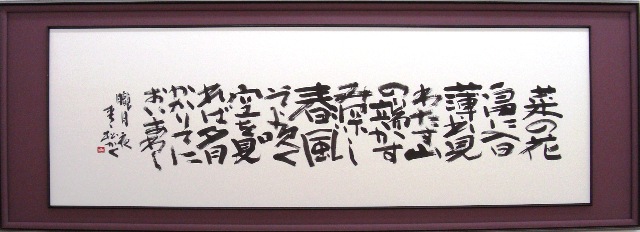 菜の花
畠に入日
薄れ見
わたす山
の端かす
みふかし
春風
そよ吹く
空を見
れば夕月
かかりてに
おいあわし
朧月夜
かく